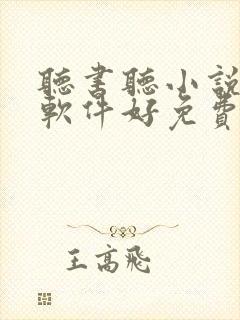 聽書聽小說
軟件好免費
王高飛